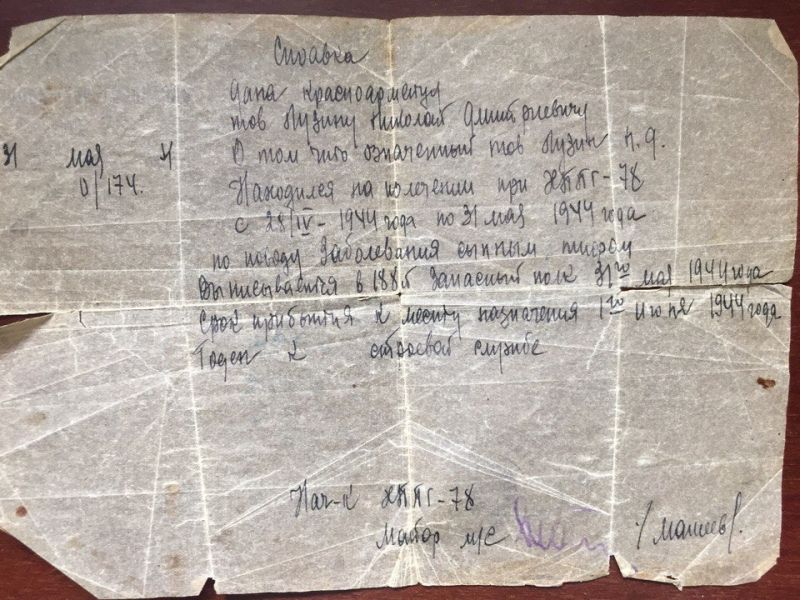 Справка
Дана Красноармейцу
тов Лузину Николай Дмитриевичу
31 мая 4
О том что означенный тов Лузин Н.Д.
0/174.
Находился на излечении при ХППГ-78
с 28/IV - 1944 года по 31 мая 1944 года
по поводу Заболевания сыпным тифом
Выписывается в 188й Запасный полк 31го мая 1944 года
Срок прибытия к месту назначения 1го июня 1944 года
Годен к строевой службе
Нач-к ХППГ-78
Майор м/с